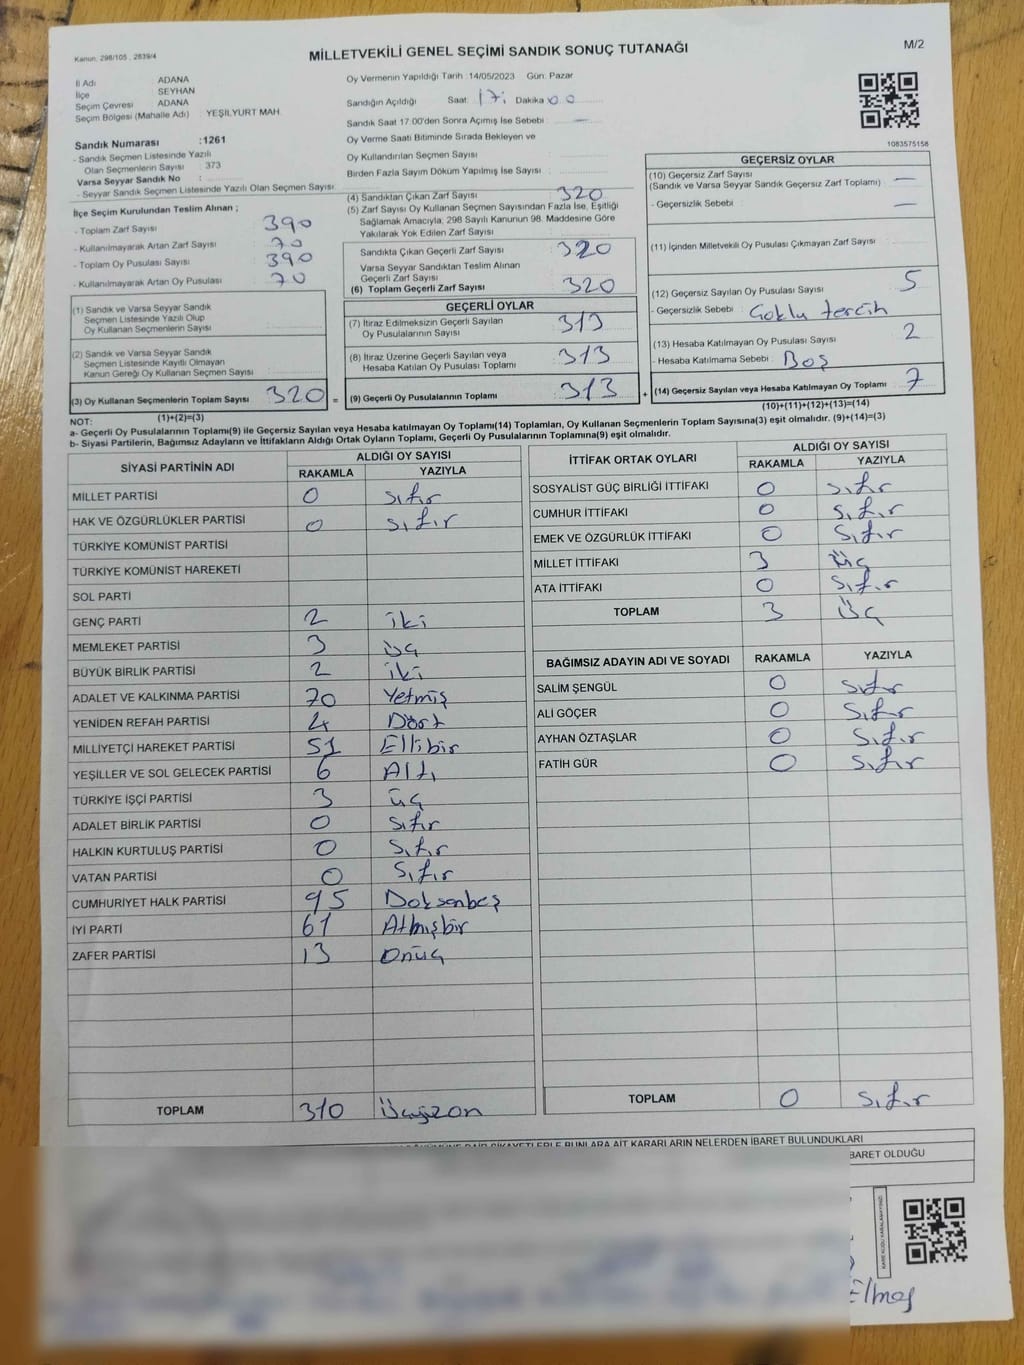 Kanun: 298/105 , 2839/4
MİLLETVEKİLİ GENEL SEÇİMİ SANDIK SONUÇ TUTANAĞI
M/2
İl Adı ADANA
İlçe SEYHAN
Seçim Çevresi ADANA
Seçim Bölgesi (Mahalle Adı) YEŞİLYURT MAH.
Oy Vermenin Yapıldığı Tarih :14/05/2023 Gün: Pazar
Sandığın Açıldığı Saat: 17: Dakika 00
Sandık Saat 17:00'den Sonra Açımış İse Sebebi : —
Oy Verme Saati Bitiminde Sırada Bekleyen ve
Oy Kullandırılan Seçmen Sayısı
Birden Fazla Sayım Döküm Yapılmış İse Sayısı :
1083575158
Sandık Numarası :1261
- Sandık Seçmen Listesinde Yazılı
Olan Seçmenlerin Sayısı : 373
Varsa Seyyar Sandık No :
- Seyyar Sandık Seçmen Listesinde Yazılı Olan Seçmen Sayısı
İlçe Seçim Kurulundan Teslim Alınan ;
- Toplam Zarf Sayısı : 390
- Kullanılmayarak Artan Zarf Sayısı : 70
- Toplam Oy Pusulası Sayısı : 390
- Kullanılmayarak Artan Oy Pusulası : 70
(1) Sandık ve Varsa Seyyar Sandık
Seçmen Listesinde Yazılı Olup
Oy Kullanan Seçmenlerin Sayısı :
(2) Sandık ve Varsa Seyyar Sandık
Seçmen Listesinde Kayıtlı Olmayan
Kanun Gereği Oy Kullanan Seçmen Sayısı :
(3) Oy Kullanan Seçmenlerin Toplam Sayısı 320 =
(4) Sandıktan Çıkan Zarf Sayısı : 320
(5) Zarf Sayısı Oy Kullanan Seçmen Sayısından Fazla İse, Eşitliği
Sağlamak Amacıyla, 298 Sayılı Kanunun 98. Maddesine Göre
Yakılarak Yok Edilen Zarf Sayısı :
Sandıkta Çıkan Geçerli Zarf Sayısı : 320
Varsa Seyyar Sandıktan Teslim Alınan
Geçerli Zarf Sayısı
(6) Toplam Geçerli Zarf Sayısı : 320
GEÇERLİ OYLAR
(7) İtiraz Edilmeksizin Geçerli Sayılan
Oy Pusulalarının Sayısı : 313
(8) İtiraz Üzerine Geçerli Sayılan veya
Hesaba Katılan Oy Pusulası Toplamı : 313
(9) Geçerli Oy Pusulalarının Toplamı : 313 +
GEÇERSİZ OYLAR
(10) Geçersiz Zarf Sayısı
(Sandık ve Varsa Seyyar Sandık Geçersiz Zarf Toplamı) : —
- Geçersizlik Sebebi : —
(11) İçinden Milletvekili Oy Pusulası Çıkmayan Zarf Sayısı :
(12) Geçersiz Sayılan Oy Pusulası Sayısı : 5
- Geçersizlik Sebebi : Çoklu tercih
(13) Hesaba Katılmayan Oy Pusulası Sayısı : 2
- Hesaba Katılmama Sebebi : Boş
(14) Geçersiz Sayılan veya Hesaba Katılmayan Oy Toplamı : 7
NOT: (1)+(2)=(3)
(10)+(11)+(12)+(13)=(14)
a- Geçerli Oy Pusulalarının Toplamı(9) ile Geçersiz Sayılan veya Hesaba katılmayan Oy Toplamı(14) Toplamları, Oy Kullanan Seçmenlerin Toplam Sayısına(3) eşit olmalıdır. (9)+(14)=(3)
b- Siyasi Partilerin, Bağımsız Adayların ve İttifakların Aldığı Ortak Oyların Toplamı, Geçerli Oy Pusulalarının Toplamına(9) eşit olmalıdır.
SİYASİ PARTİNİN ADI ALDIĞI OY SAYISI
RAKAMLA YAZIYLA
MİLLET PARTİSİ 0 sıfır
HAK VE ÖZGÜRLÜKLER PARTİSİ 0 sıfır
TÜRKİYE KOMÜNİST PARTİSİ
TÜRKİYE KOMÜNİST HAREKETİ
SOL PARTİ
GENÇ PARTİ 2 iki
MEMLEKET PARTİSİ 3 üç
BÜYÜK BİRLİK PARTİSİ 2 iki
ADALET VE KALKINMA PARTİSİ 70 Yetmiş
YENİDEN REFAH PARTİSİ 4 Dört
MİLLİYETÇİ HAREKET PARTİSİ 51 Ellibir
YEŞİLLER VE SOL GELECEK PARTİSİ 6 Altı
TÜRKİYE İŞÇİ PARTİSİ 3 üç
ADALET BİRLİK PARTİSİ 0 Sıfır
HALKIN KURTULUŞ PARTİSİ 0 Sıfır
VATAN PARTİSİ 0 Sıfır
CUMHURİYET HALK PARTİSİ 95 Doksanbeş
İYİ PARTİ 61 Atmışbir
ZAFER PARTİSİ 13 Onüç
TOPLAM 310 Üçyüzon
İTTİFAK ORTAK OYLARI ALDIĞI OY SAYISI
RAKAMLA YAZIYLA
SOSYALİST GÜÇ BİRLİĞİ İTTİFAKI 0 sıfır
CUMHUR İTTİFAKI 0 Sıfır
EMEK VE ÖZGÜRLÜK İTTİFAKI 0 Sıfır
MİLLET İTTİFAKI 3 Üç
ATA İTTİFAKI 0 Sıfır
TOPLAM 3 Üç
BAĞIMSIZ ADAYIN ADI VE SOYADI RAKAMLA YAZIYLA
SALİM ŞENGÜL 0 Sıfır
ALİ GÖÇER 0 Sıfır
AYHAN ÖZTAŞLAR 0 Sıfır
FATİH GÜR 0 Sıfır
TOPLAM 0 Sıfır
ŞİKAYETLERLE BUNLARA AİT KARARLARIN NELERDEN İBARET BULUNDUKLARI
BARET OLDUĞU